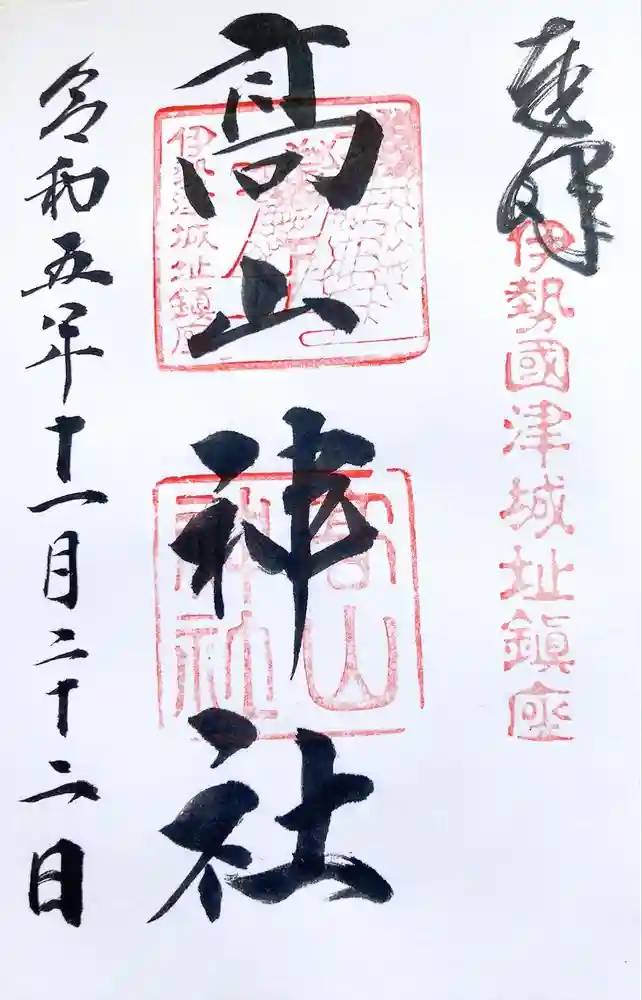 奉拝
伊勢國津城址鎮座
高山神社
伊勢津城址鎮座
高山
神社
令和五年十一月二十二日